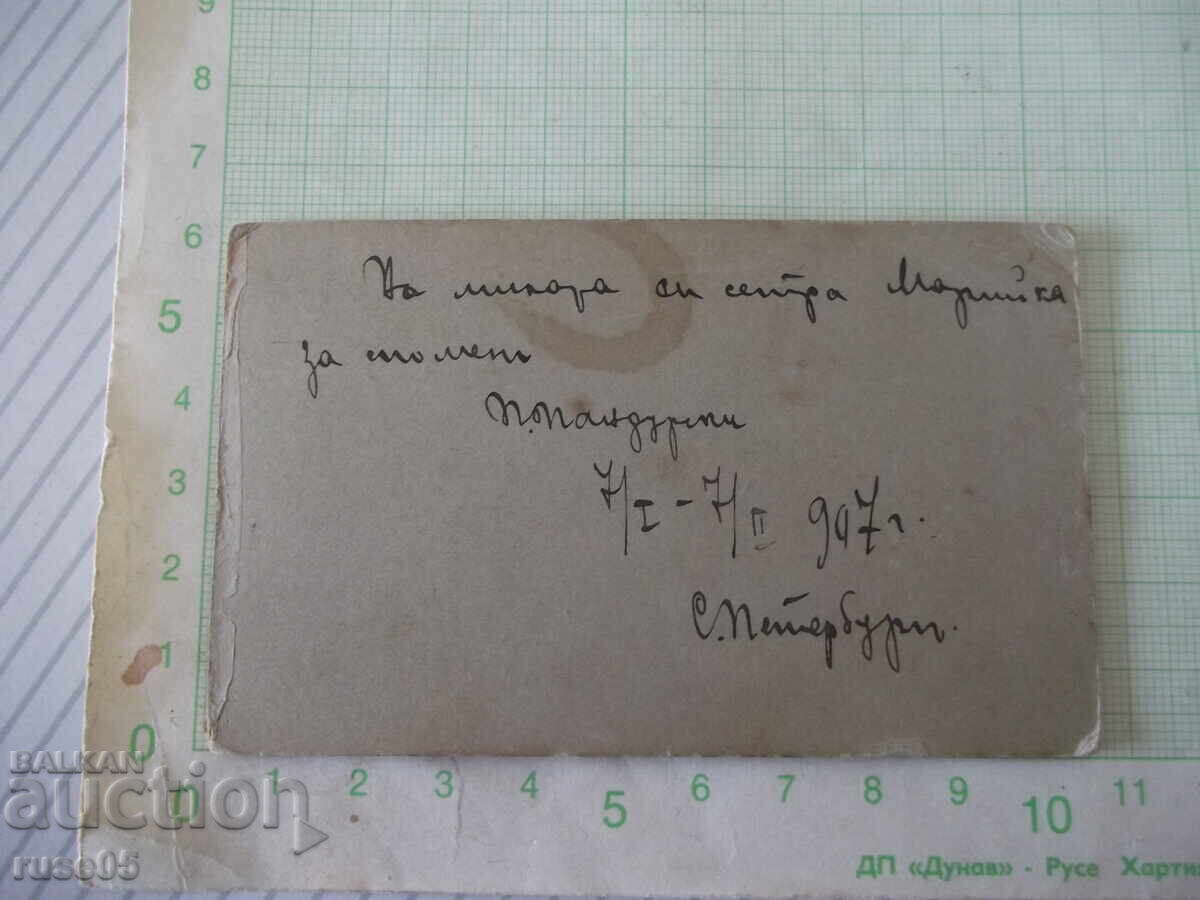 9
8
7
6
5
4
3
2
1
0
На милата си сестра Марийка
за спомен
П. Пандурски
7/I – 7/II 907 г.
С. Петербургъ.
0 1 2 3 4 5 6 7 8 9 10 11
ДП «Дунав» - Русе Харти
BALKAN
auction
ruse05